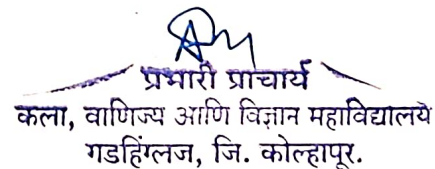 प्रभारी प्राचार्य
कला, वाणिज्य आणि विज्ञान महाविद्यालये
गडहिंग्लज, जि. कोल्हापूर.